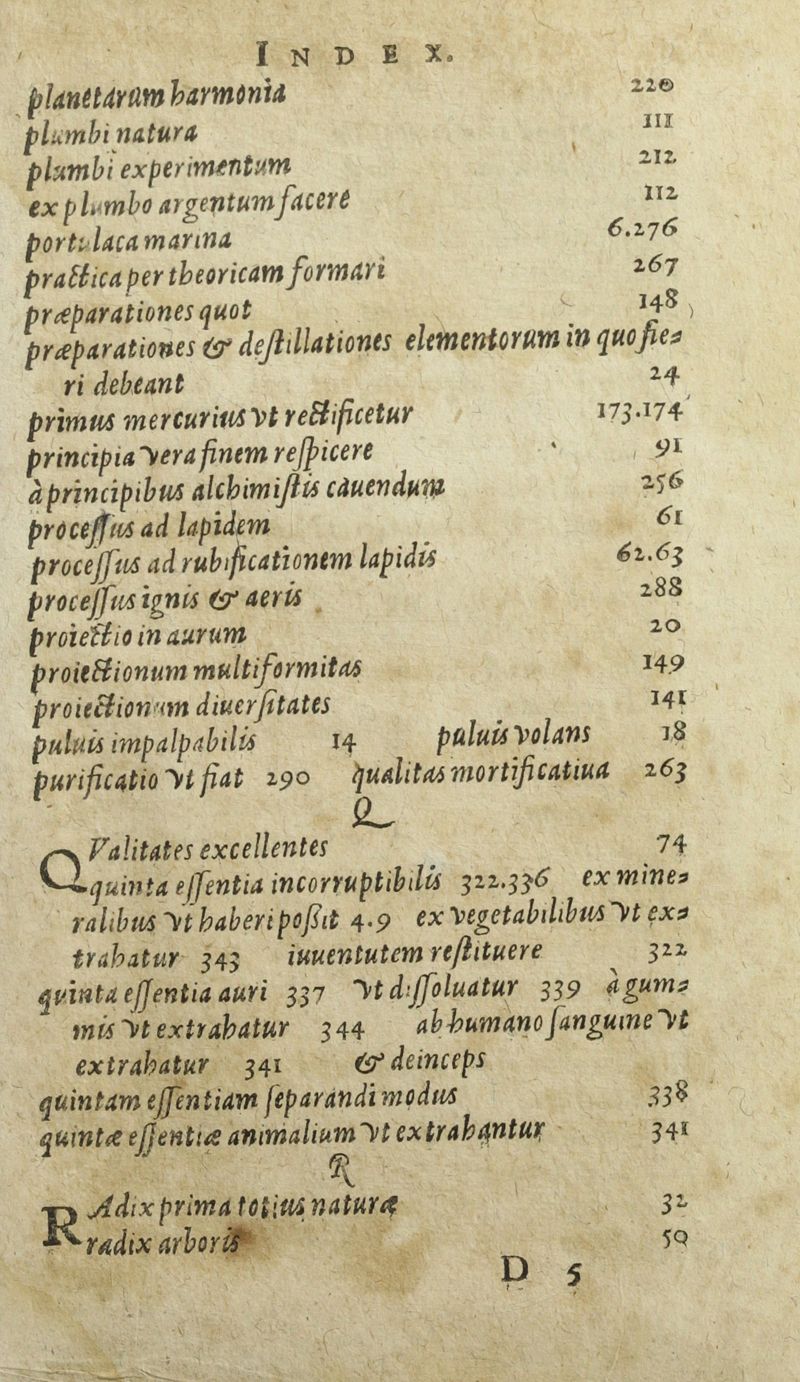 INDEX.
planetarum harmonia 220
plumbi natura 111
plumbi experimentum 212
ex plumbo argentum facere 112
portulaca marina 6.276
practica per theoricam formari 267
præparationes quot 148
præparationes & deſtillationes elementorum in quo fie⸗
ri debeant 24
primus mercurius vt rectificetur 173.174
principia vera finem reſpicere 91
à principibus alchimiſtis cauendum 256
proceſſus ad lapidem 61
proceſſus ad rubificationem lapidis 62.63
proceſſus ignis & aeris 288
proiectio in aurum 20
proiectionum multiformitas 149
proiectionum diuerſitates 141
puluis impalpabilis 14 puluis volans 18
purificatio vt fiat 290 qualitas mortificatiua 263
Q
QValitates excellentes 74
quinta eſſentia incorruptibilis 322.336 ex mine⸗
ralibus vt haberi poßit 4.9 ex vegetabilibus vt ex⸗
trahatur 343 iuuentutem reſtituere 322
quinta eſſentia auri 337 vt diſſoluatur 339 à gum⸗
mis vt extrahatur 344 ab humano ſanguine vt
extrahatur 341 & deinceps
quintam eſſentiam ſeparandi modus 338
quintæ eſſentiæ animalium vt extrahantur 341
R
RAdix prima totius naturæ 32
radix arboris 59
D 5